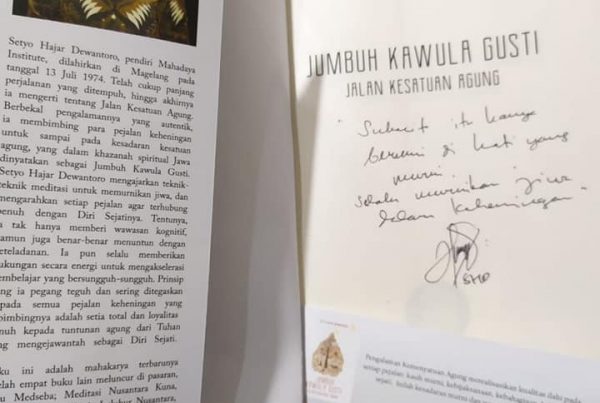 Setyo Hajar Dewantoro, pendiri Mahadaya
Institute, dilahirkan di Magelang pada
tanggal 13 Juli 1974. Telah cukup panjang
perjalanan yang ditempuh, hingga akhirnya
ia mengerti tentang Jalan Kesatuan Agung.
Berbekal pengalamannya yang autentik,
ia membimbing para pejalan keheningan
untuk sampai pada kesadaran kesatuan
agung, yang dalam khazanah spiritual Jawa
dinyatakan sebagai Jumbuh Kawula Gusti.
Setyo Hajar Dewantoro mengajarkan teknik-
teknik meditasi untuk memurnikan jiwa, dan
mengarahkan setiap pejalan agar terhubung
penuh dengan Diri Sejatinya. Tentunya,
ia tak hanya memberi wawasan kognitif,
namun juga benar-benar menuntun dengan
keteladanan. Ia pun selalu memberikan
dukungan secara energi untuk mengakselerasi
pembelajar yang bersungguh-sungguh. Prinsip
yang ia pegang teguh dan sering ditegaskan
kepada semua pejalan keheningan yang
dibimbingnya adalah setia total dan loyalitas
penuh kepada tuntunan agung dari Tuhan
yang mengejawantah sebagai Diri Sejati.
ku ini adalah mahakarya terbarunya
elah empat buku lain meluncur di pasaran,
u Medseba; Meditasi Nusantara Kuna,
JUMBUH KAWULA GUSTI
JALAN KESATUAN AGUNG
" itu hanya
bersemi di hati yang
murni.
Selalu murnikan jiwa
dalam keheningan "
SHD
Pengalaman Kemenyatuan Agung merealisasikan kualitas ilahi pada
setiap pejalan: kasih murni, kebijaksanaan,
sejati. Inilah kesadaran murni